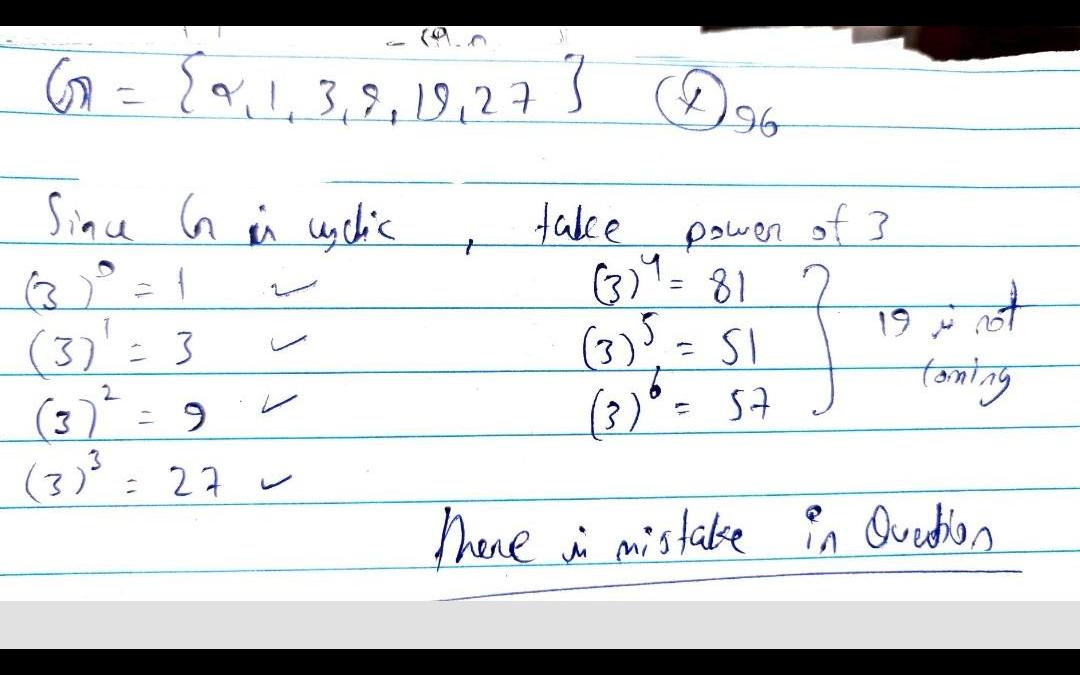 G = {α, 1, 3, 9, 19, 27 } ⊗96
Since G is cyclic , take power of 3
(3)^0 = 1 ✓ (3)^4 = 81
(3)^1 = 3 ✓ (3)^5 = 51 } 19 is not
(3)^2 = 9 ✓ (3)^6 = 57 coming
(3)^3 = 27 ✓
There is mistake in Question